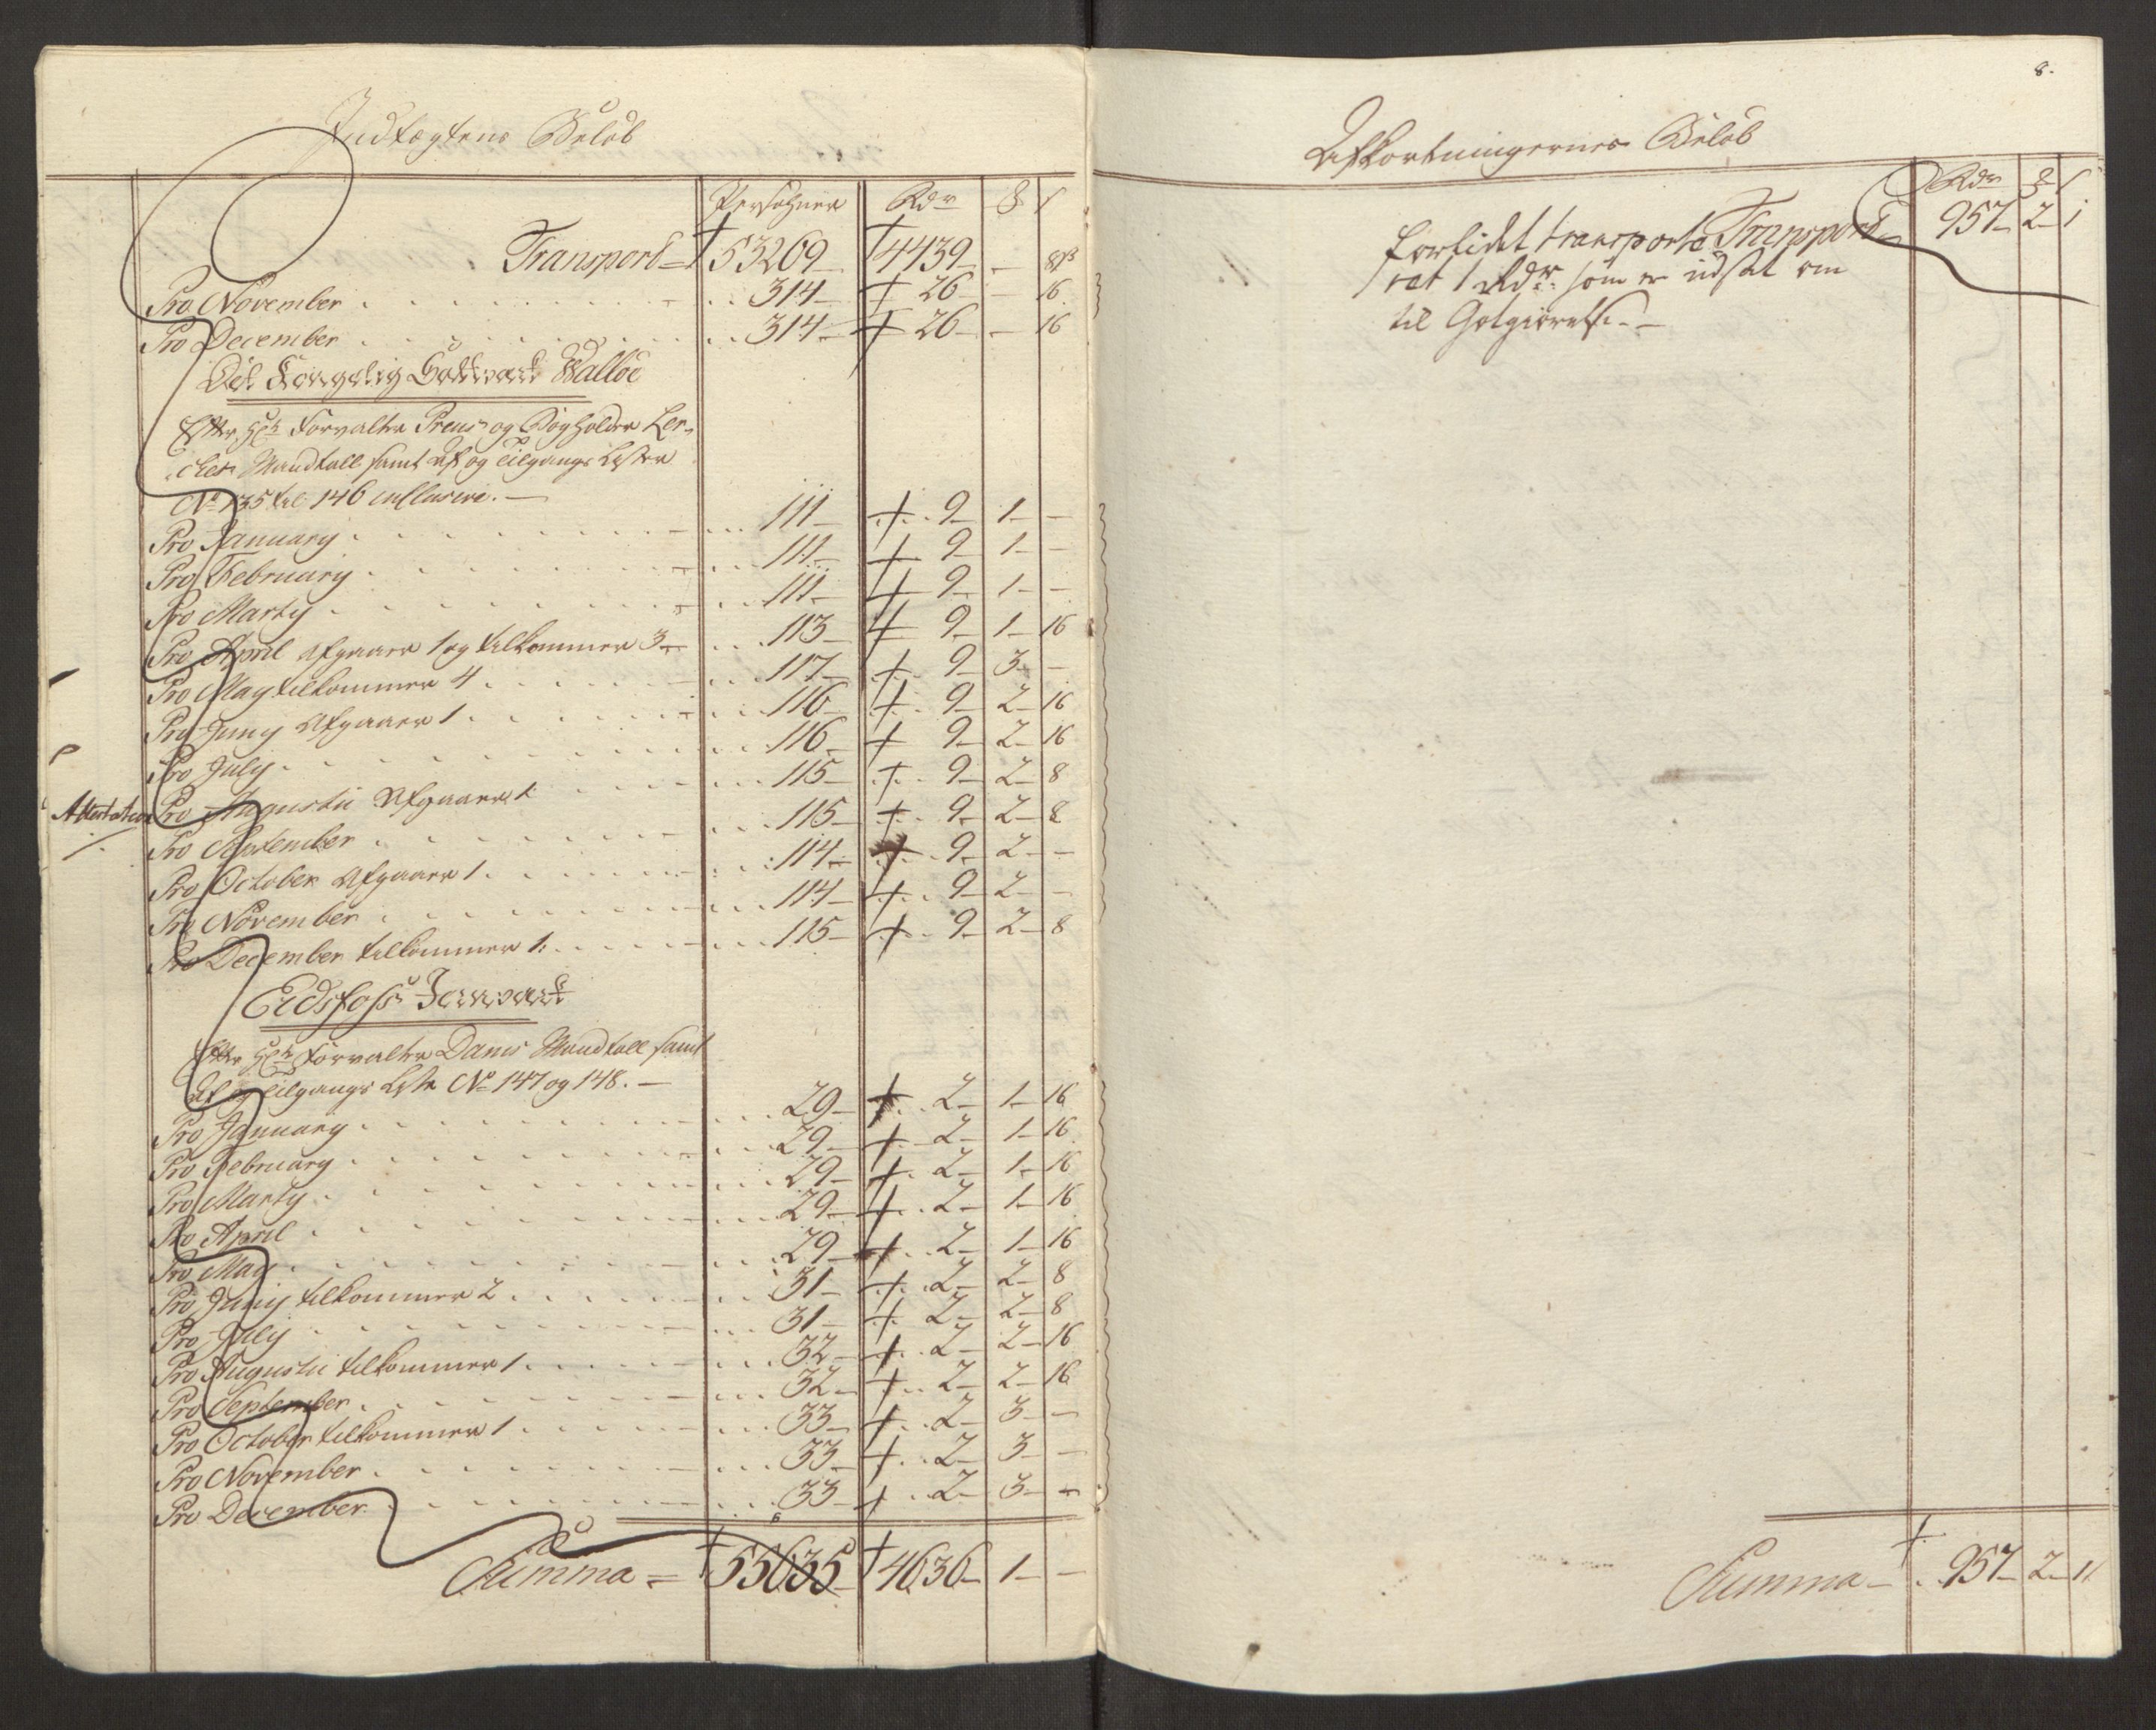 Indtægtens Beløb
Persohner Rdr ß
Transport = 53269 4439 - 8
Pro November 314 26 - 16
Pro December 314 26 - 16
Det Kongelig Saltværk Walløe
Efter Hr Forvalter Preus og Bogholder Ler-
ches Mandtall samt Af og Tilgangs Lister
No 135 til 146 inclusive. -
Pro January 111 9 1 -
Pro February 111 9 1 -
Pro Marty 111 9 1 -
Pro April Afgaaer 1 og tilkommer 3 113 9 1 16
Pro May tilkommer 4 117 9 3 -
Pro Juny Afgaaer 1 116 9 2 16
Pro July 116 9 2 16
Pro Augustii Afgaaer 1 115 9 2 8
Attestation
Pro September 115 9 2 8
Pro October Afgaaer 1 114 9 2 -
Pro November 114 9 2 -
Pro December tilkommer 1 115 9 2 8
Eidsfoss Jernværk
Efter Hr Forvalter Danis Mandtall samt
Af og Tilgangs Liste No 147 og 148. -
Pro January 29 2 1 16
Pro February 29 2 1 16
Pro Marty 29 2 1 16
Pro April 29 2 1 16
Pro May 29 2 1 16
Pro Juny tilkommer 2 31 2 2 8
Pro July 31 2 2 8
Pro Augustii tilkommer 1 32 2 2 16
Pro September 32 2 2 16
Pro October tilkommer 1 33 2 3 -
Pro November 33 2 3 -
Pro December 33 2 3 -
Summa = 55635 4636 1 -
8.
Afkortningernes Beløb
Rdr
Transport 957 2 1
forlidet transporte-
ret 1 Rdr som er udsat om
til Gotgiørelse. -
Summa 957 2 1